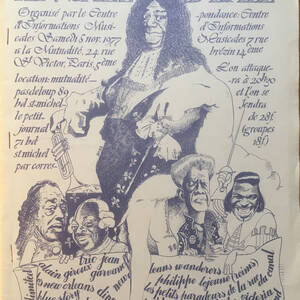 Organisé par le Centre
d'Informations Musi-
cales Samedi 5 nov. 1977
a la Mutualité, 24 rue
St Victor, Paris, 5ème
location: mutualité-
pasdeloup 89
bd st-michel
le petit-
journal
71 bd
st-michel
par corres-
pondance: Centre
d'Informations
Musicales 7 rue
brézin 14ème
L'on attaque-
ra à 20h30
et l'on se
fendra
de 28f
(groupes
18f)
trio jean
alain giroux
new orleans
blues story
leans wanderers
philippe lejeune (reims)
les petits ramoneurs de la rue du canal